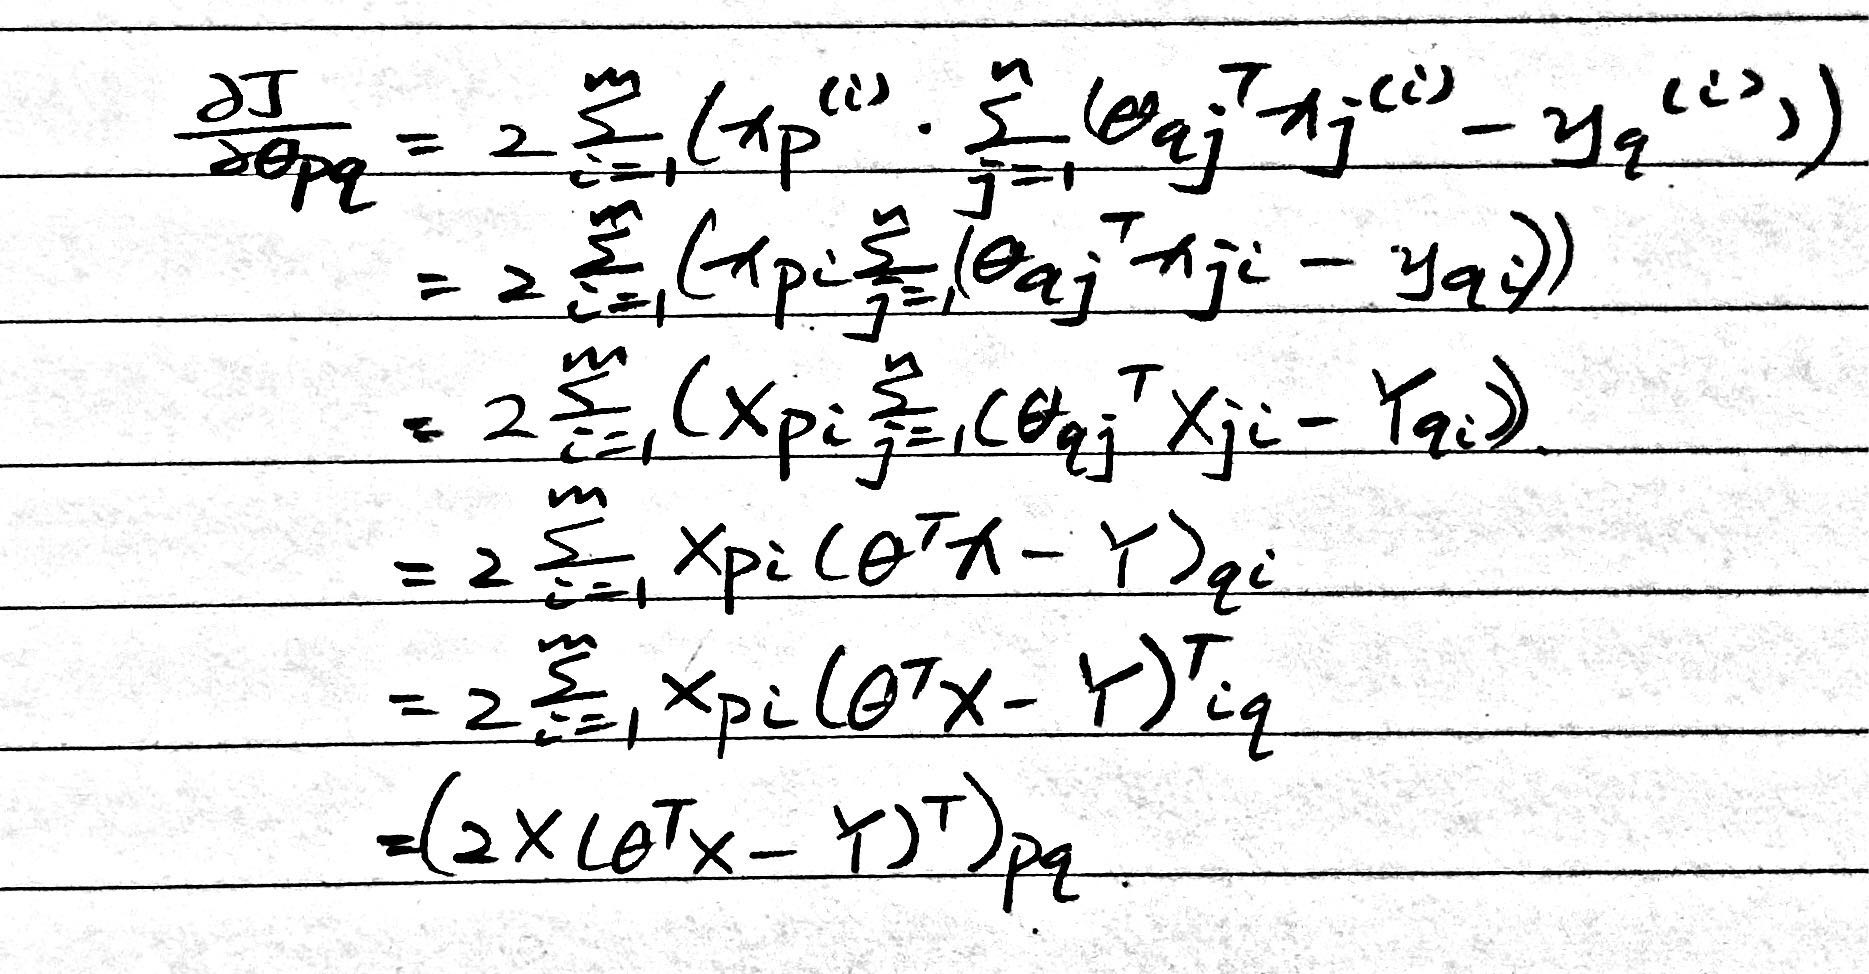 ∂J/∂θpq = 2 ∑_{i=1}^{m} (x_p^{(i)} · ∑_{j=1}^{n} (θ_{qj}^T x_j^{(i)} − y_q^{(i)}))
= 2 ∑_{i=1}^{m} (x_{pi} ∑_{j=1}^{n} (θ_{qj}^T x_{ji} − y_{qi}))
= 2 ∑_{i=1}^{m} (X_{pi} ∑_{j=1}^{n} (θ_{qj}^T X_{ji} − Y_{qi})).
= 2 ∑_{i=1}^{m} X_{pi} (θ^T x − Y)_{qi}
= 2 ∑_{i=1}^{m} X_{pi} (θ^T X − Y)^T_{iq}
= (2X(θ^T X − Y)^T)_{pq}.